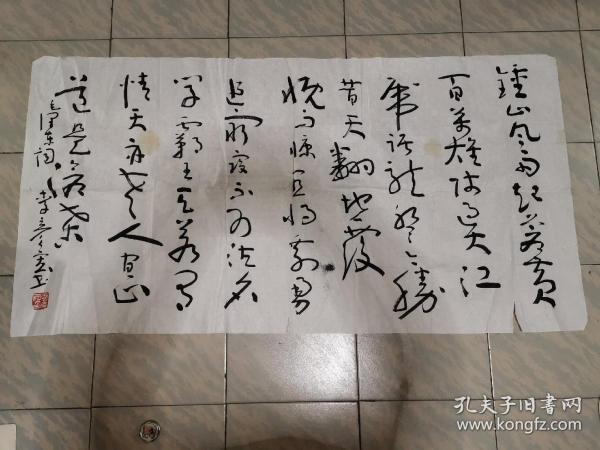 鍾山风雨起苍黄
百萬雄师过大江
虎踞龙盘今胜
昔天翻地覆
慨而慷宜将剩勇
追穷寇不可沽名
学霸王天若有
情天亦老人间正
道是沧桑
毛泽东词 李书
孔夫子旧书网
www.kongfz.com